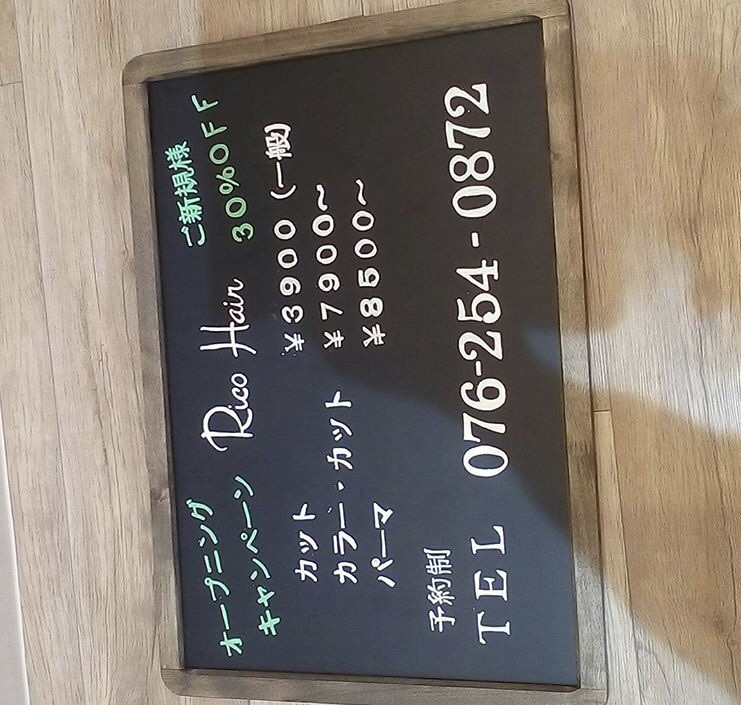 オープニング
キャンペーン
Rico Hair
ご新規様
30%OFF
カット ¥3900（一般）
カラー・カット ¥7900〜
パーマ ¥8500〜
予約制
TEL 076-254-0872